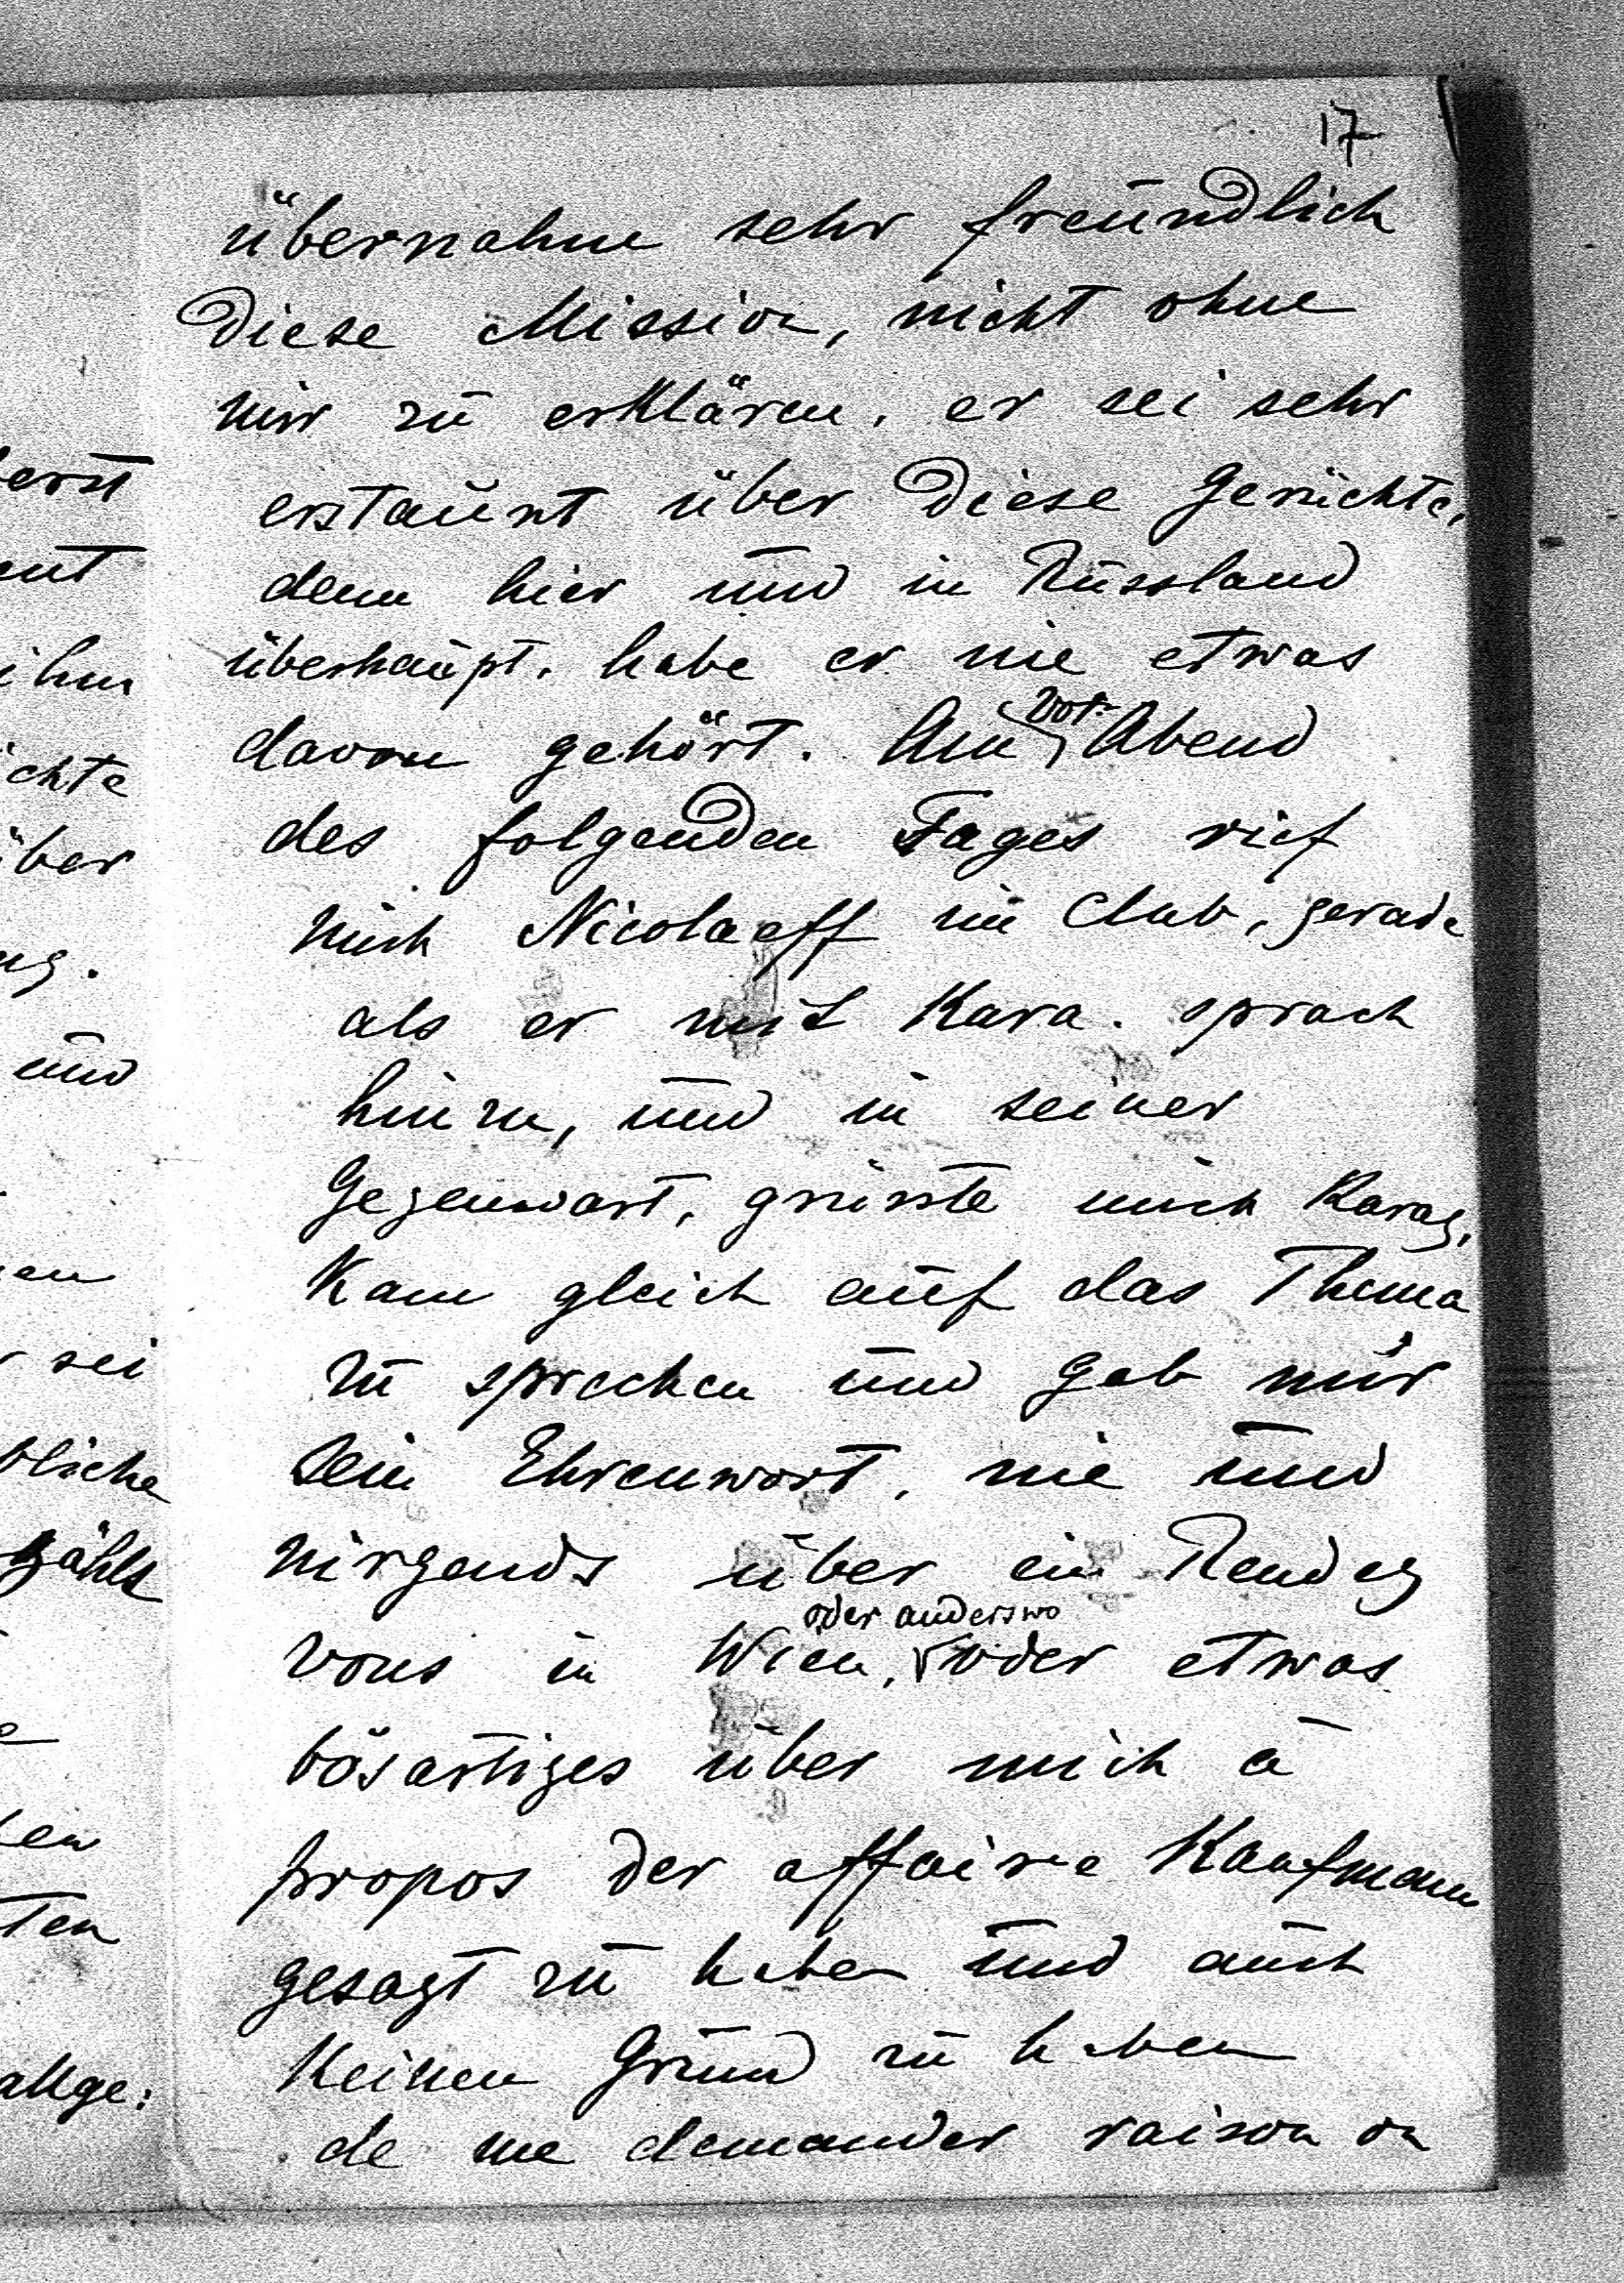 17
übernahm sehr freundlich
diese Mission, nicht ohne
mir zu erklären, er sei sehr
erstaunt über diese Gerüchte,
denn hier und in Russland
überhaupt, habe er nie etwas
davon gehört. Am Vor-Abend
des folgenden Tages rief
mich Nicolaeff im Club, gerade
als er mit Kara. sprach
hinzu, und in seiner
Gegenwart, grüsste mich Karag,
kam gleich auf das Thema
zu sprechen und gab mir
sein Ehrenwort, nie und
nirgends über ein Rendez
vous in Wien, oder anderswo oder etwas
bösartiges über mich à
propos der affaire Kaufmann
gesagt zu haben und auch
keinen Grund zu haben
de me demander raison ou
erst
ent
ihm
ichte
über
und
en
r sei
bliche
zählt
en
ten
allge: